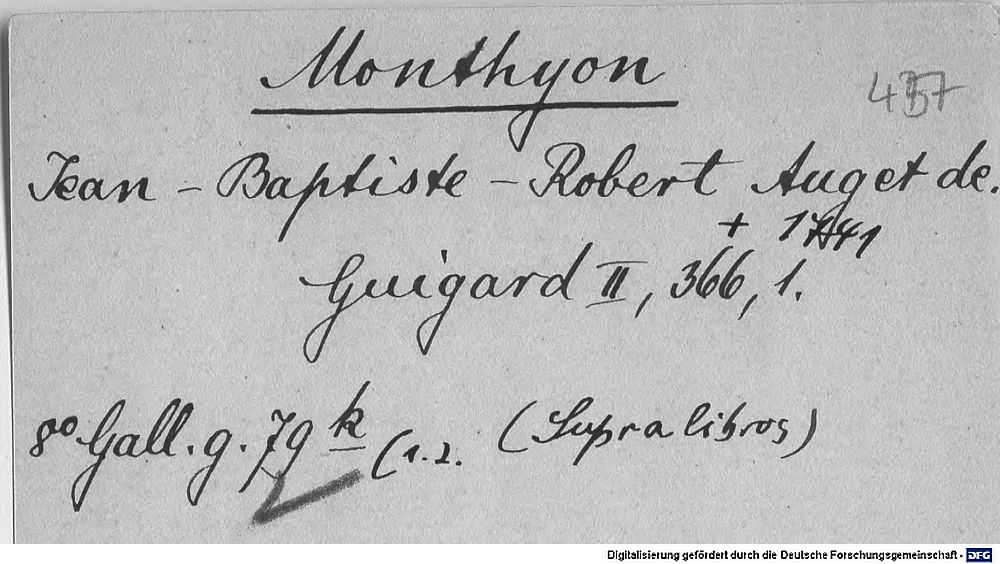 Monthyon
457
Jean-Baptiste-Robert Auget de.
+ 1741
Guigard II, 366, 1.
8° Gall. g. 79 k (1.2. (Supralibros)
Digitalisierung gefördert durch die Deutsche Forschungsgemeinschaft - DFG